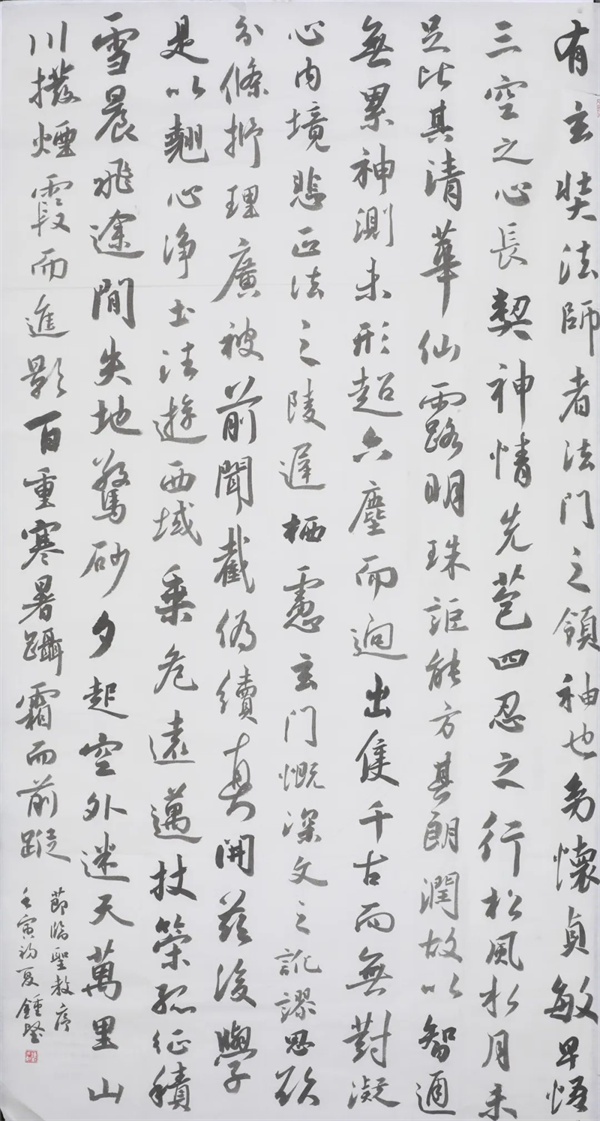 有玄奘法師者法門之領袖也幼懷貞敏早悟
三空之心長契神情先苞四忍之行松風水月未
足比其清華仙露明珠詎能方其朗潤故以智通
無累神測未形超六塵而迥出隻千古而無對凝
心內境悲正法之陵遲栖慮玄門慨深文之訛謬思欲
分條析理廣被前聞截偽續真開茲後學
是以翹心淨土法遊西域乘危遠邁杖策孤征積
雪晨飛途閒失地驚砂夕起空外迷天萬里山
川撥煙霞而進影百重寒暑躡霜而前蹤
節臨聖教序
壬寅初夏鍾